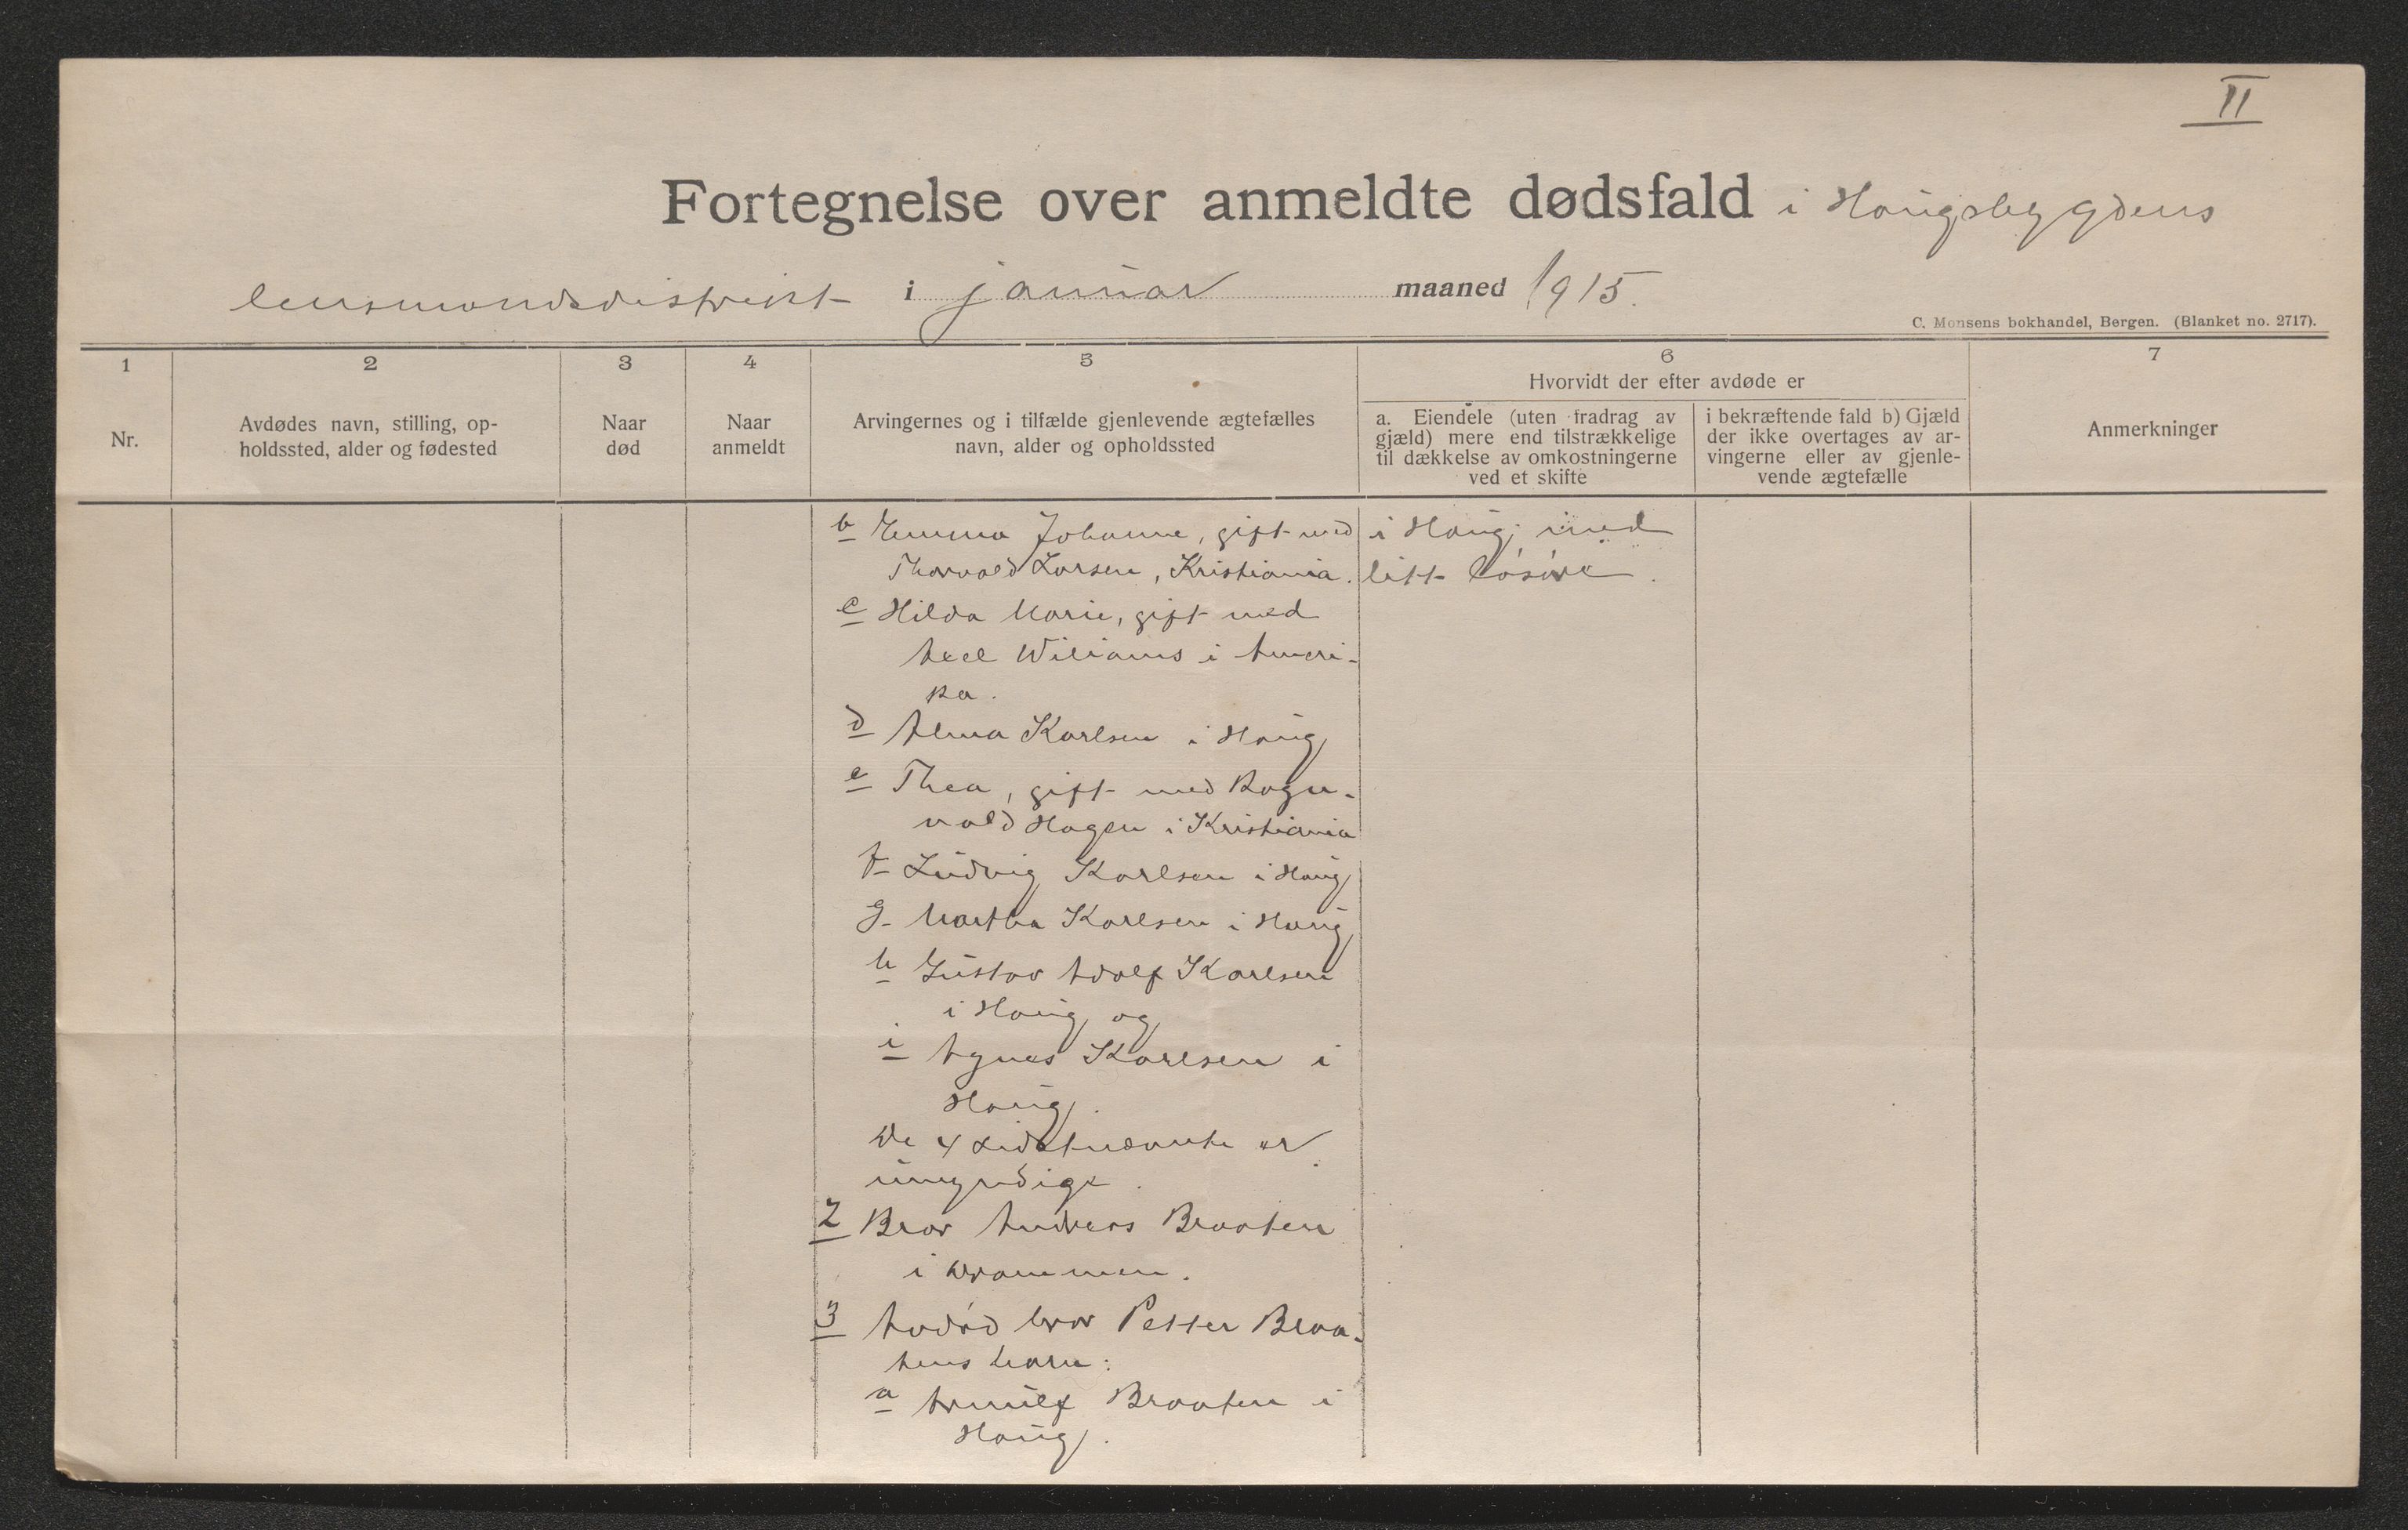 II
Fortegnelse over anmeldte dødsfald i Haugsbygdens
lensmandsdistrikt i januar maaned 1915.
C. Monsens bokhandel, Bergen. (Blanket no. 2717).
1
Nr.
2
Avdødes navn, stilling, op-
holdssted, alder og fødested
3
Naar
død
4
Naar
anmeldt
5
Arvingernes og i tilfælde gjenlevende ægtefælles
navn, alder og opholdssted
6
Hvorvidt der efter avdøde er
a. Eiendele (uten fradrag av
gjæld) mere end tilstrækkelige
til dækkelse av omkostningerne
ved et skifte
i bekræftende fald b) Gjæld
der ikke overtages av ar-
vingerne eller av gjenle-
vende ægtefælle
7
Anmerkninger
b Emma Johanne, gift med
Thorvald Larsen, Kristiania.
c Hilda Marie, gift med
Axel Wiliams i Ameri-
ka.
d Alma Karlsen i Haug
e Thea, gift med Ragn-
vald Hagen i Kristiania
f Ludvig Karlsen i Haug
g Martha Karlsen i Haug
h Gustav Adolf Karlsen
i Haug og
i Agnes Karlsen i
Haug.
De 4 sidstnævnte er
umyndige.
2 Bror Andreas Braaten
i Drammen.
3 Avdød bror Petter Braa-
tens barn:
a Arnulf Braaten i
Haug.
i Haug; med
litt løsøre.